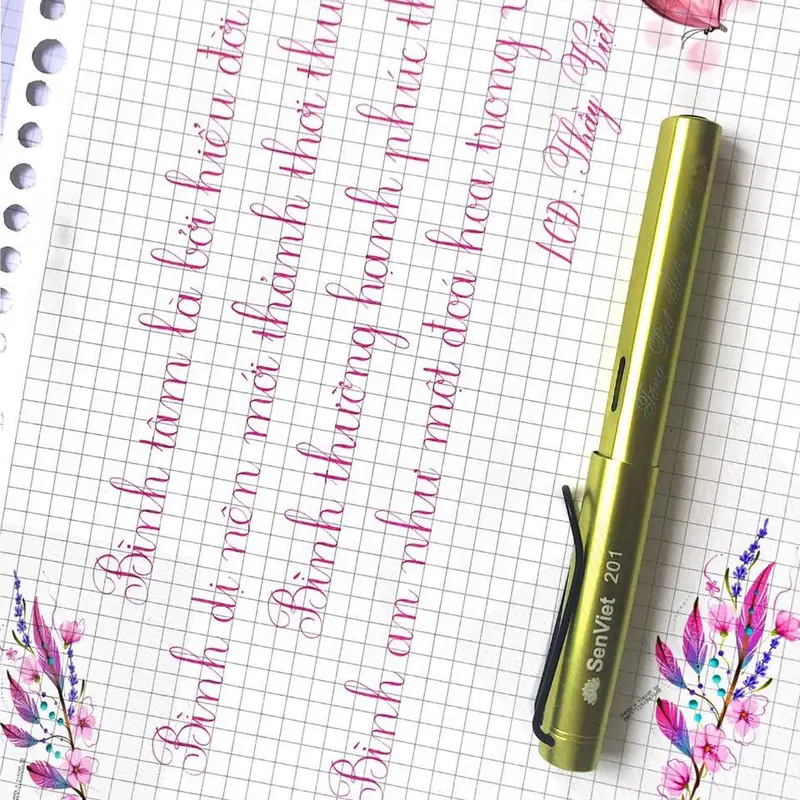 Bình tâm là bởi hiểu đời
Bình dị nên mới thảnh thơi
Bình thường hạnh phúc
Bình an như một đoá hoa trong
LCĐ: Thầy Việt
SenViet 201